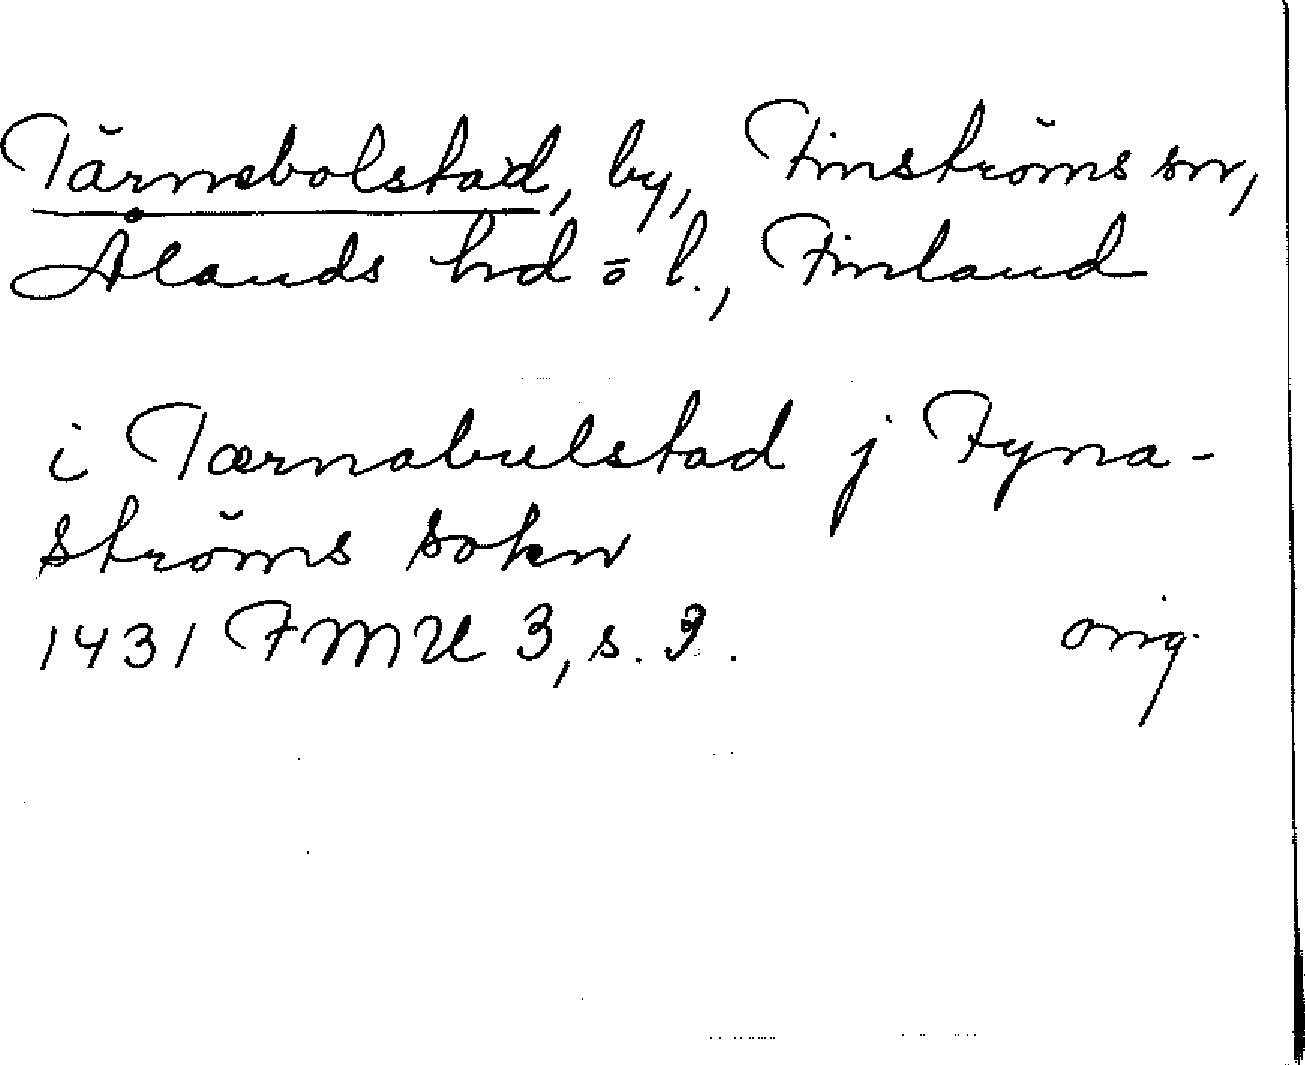 Tärnebolstad, by, Finströms sn,
Ålands hd o l., Finland
i Tærnabulstad j Fyna-
ströms sokn
1431 FMU 3, s. 9.
orig.